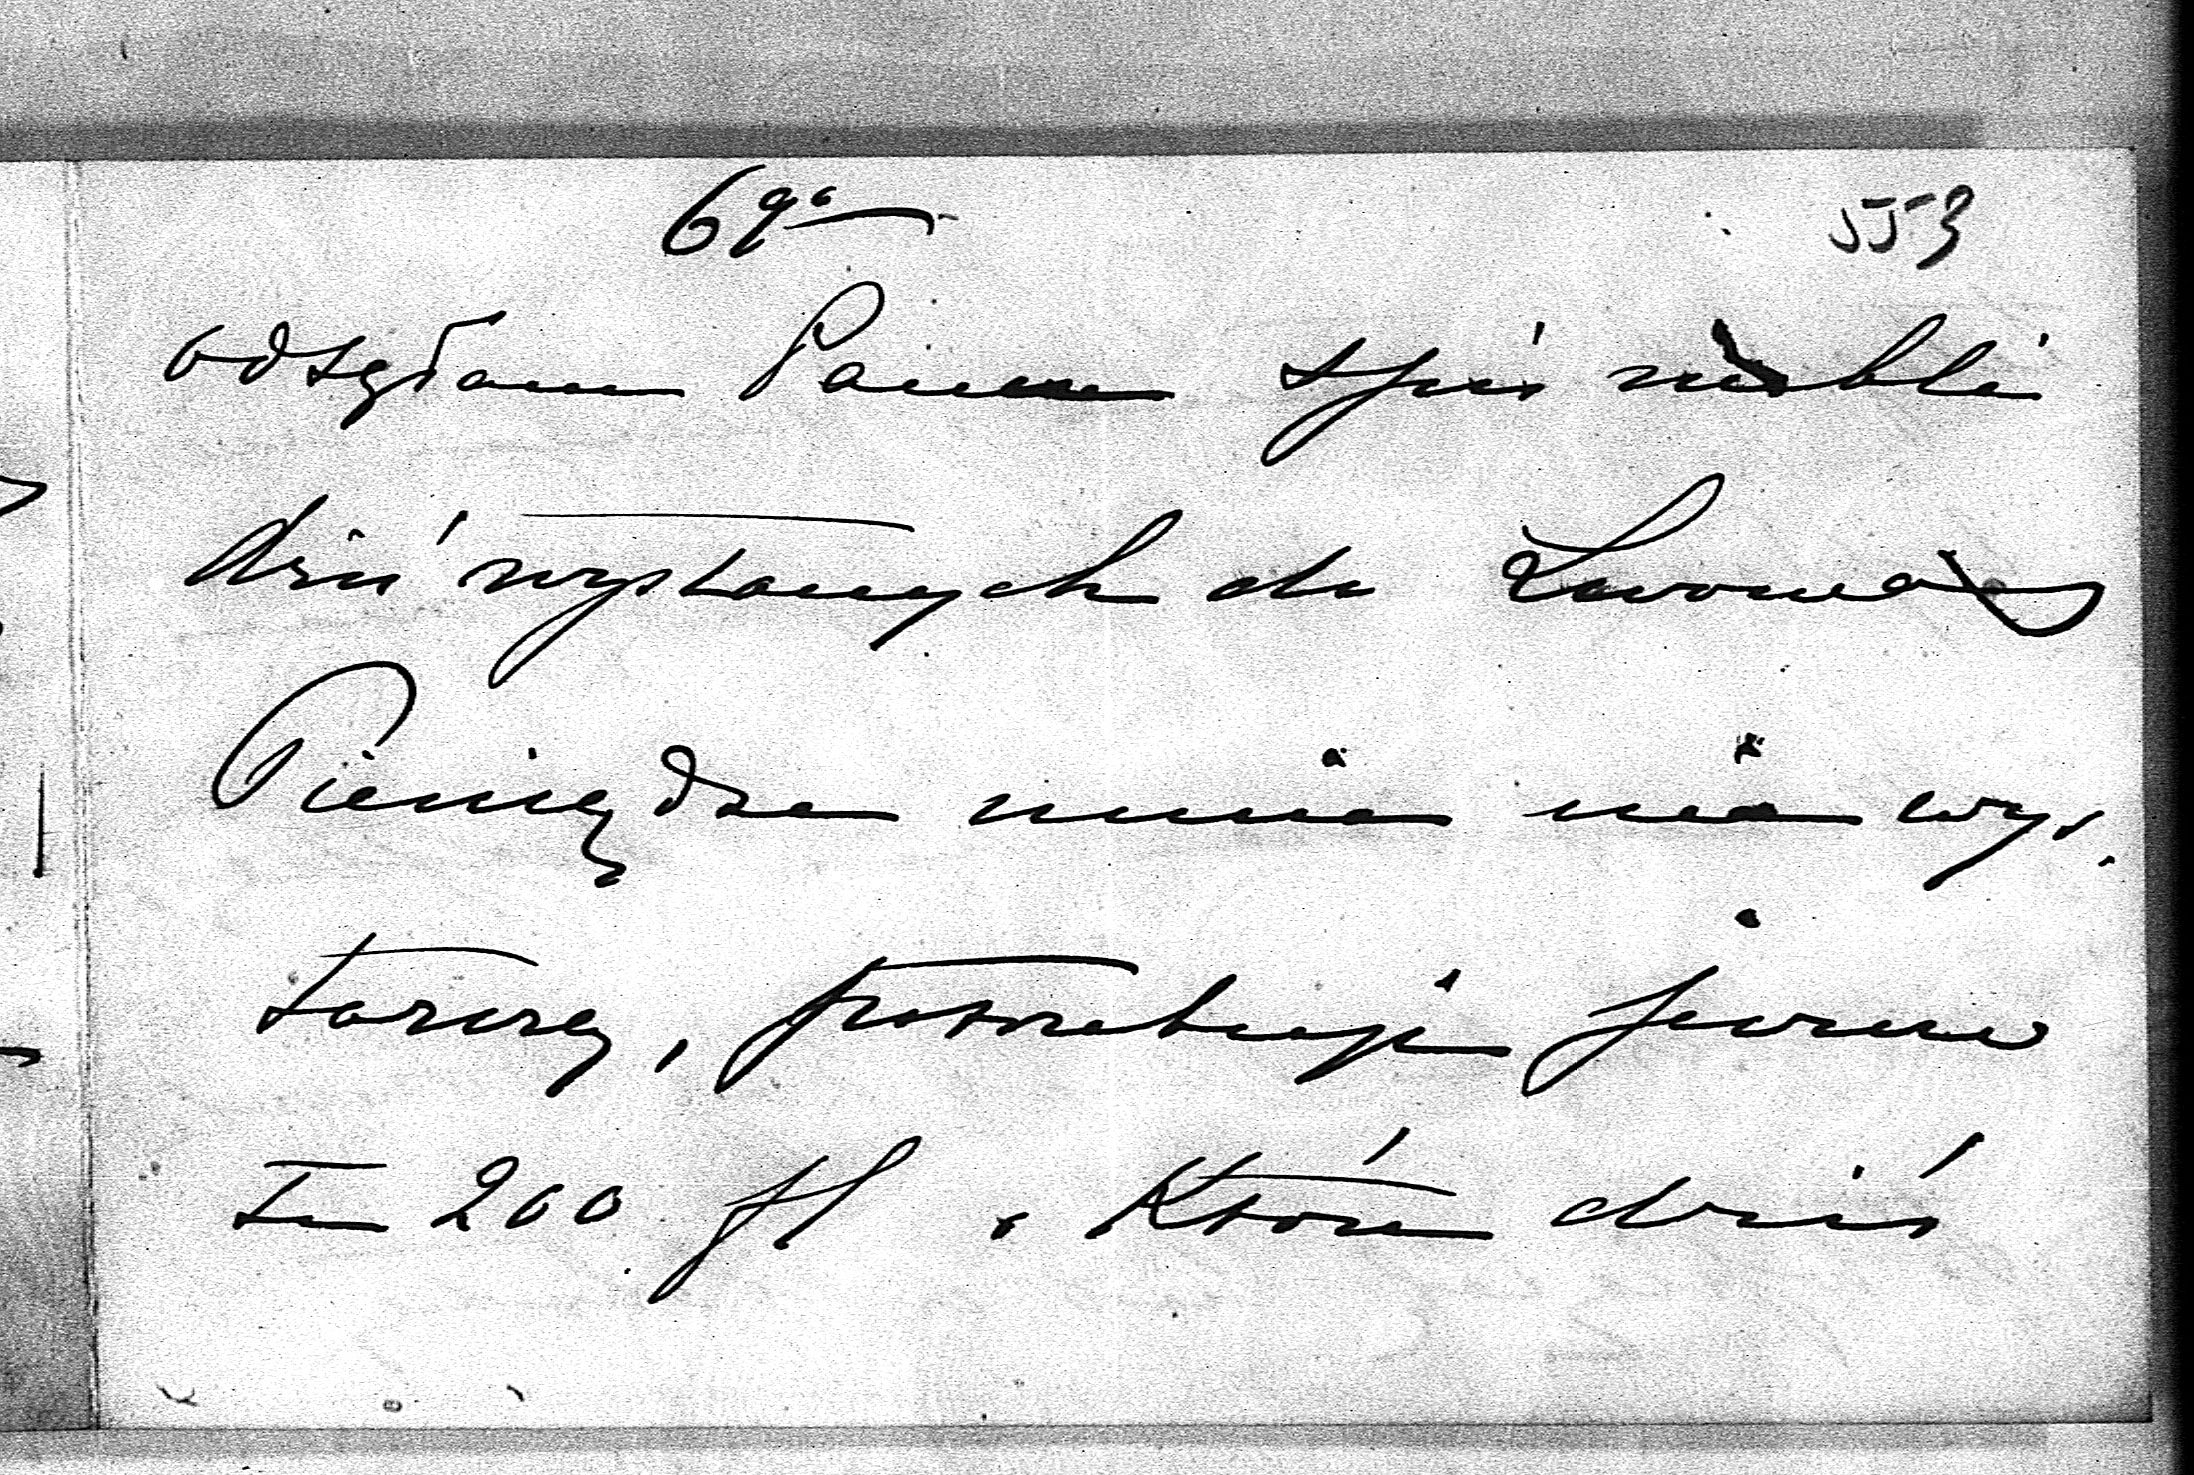 6go
553
odsyłam Panu spis mebli
dziś wysłanych do Lwowa
Pieniądze mnie nie wys.
tarczą, potrzebuję jeszcze
ze 200 fl. które dziś